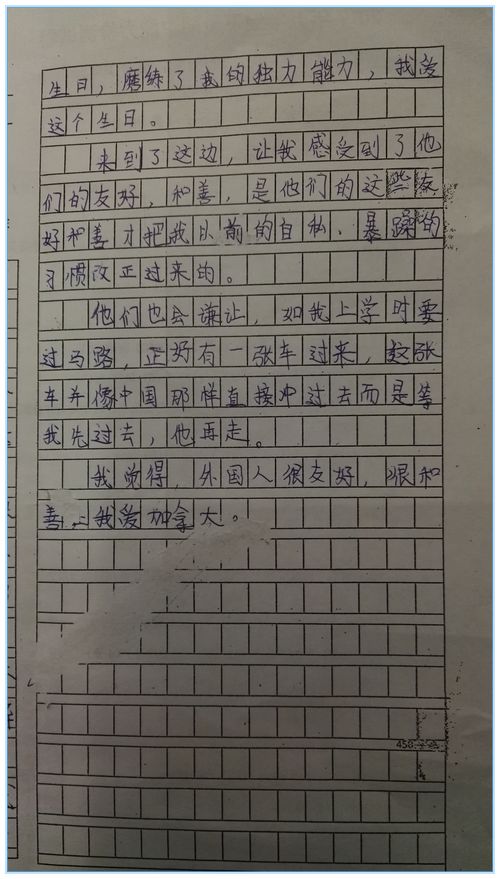 生日，磨练了我的独力能力，我爱
这个生日。
来到了这边，让我感受到了他
们的友好，和善，是他们的这些友
好和善才把我以前的自私、暴躁的
习惯改正过来的。
他们也会谦让，如我上学时要
过马路，正好有一张车过来，这张
车并像中国那样直接冲过去而是等
我先过去，他再走。
我觉得，外国人很友好，很和
善，我爱加拿大。